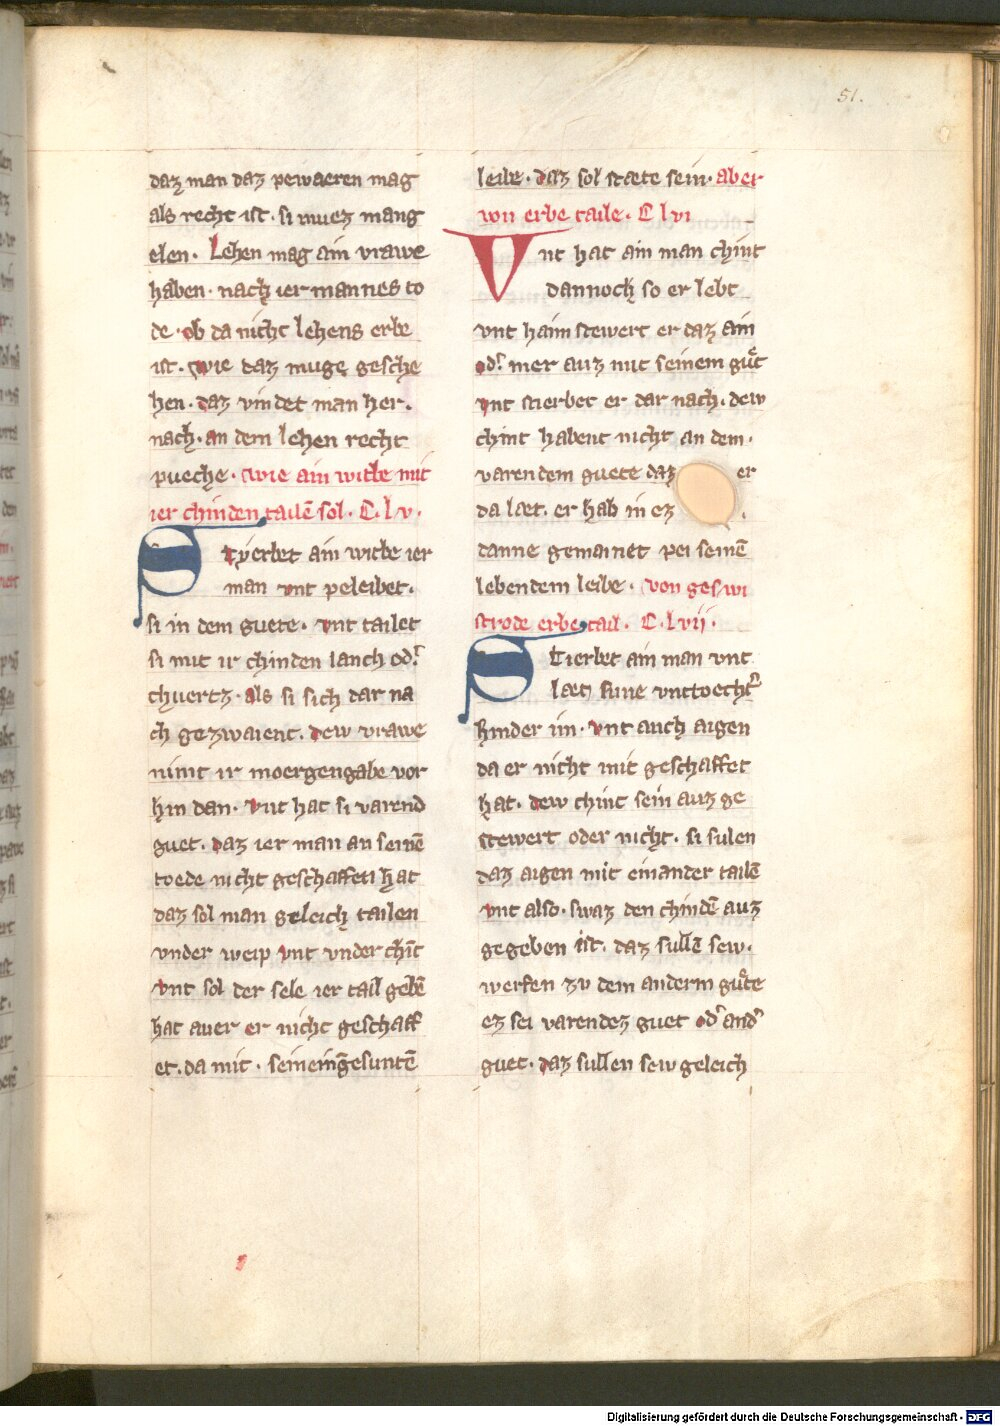 51.
daz man daz pewaeren mag
als recht ist. si muez mang
elen. Lehen mag ain vrawe
haben. nach ier mannes to
de. ob da nicht lehens erbe
ist. wie daz muge gesche
hen. daz vindet man her.
nach. an dem lehen recht
pueche. wie ain witbe mit
ier chinden tailē sol. C. lv.
Styerbet ain witbe ier
man vnt peleibet.
si in dem guete. vnt tailet
si mit ir chinden lanch od͛
chuertz. als si sich dar na
ch gezwaient. dew vrawe
nimt ir moergengabe vor
hin dan. vnt hat si varend
guet. daz ier man an seinē
toede nicht geschaffen hat
daz sol man geleich tailen
vnder weip vnt vnder chīt
vnt sol der sele ier tail gebē
hat aver er nicht geschaff
et. da mit. seinem gesuntē
leibe. daz sol staete sein. aber
von erbe taile. C lvi
Vnt hat ain man chint
dannoch so er lebt
vnt haim stewert er daz ain
od͛ mer auz mit seinem guͤt
vnt stierbet er dar nach. dew
chint habent nicht an dem.
varendem guete daz er
da laet. er hab in ez .
danne gemainet pei seinē
lebendem leibe. von geswi
strode erbe tail. C. lvii.
Stierbet ain man vnt
laet sune vnt toecht͛
hinder im. vnt auch aigen
da er nicht mit geschaffet
hat. dew chint sein auz ge
stewert oder nicht. si sulen
daz aigen mit einander tailē
vnt also. swaz den chindē auz
gegeben ist. daz sullē sew.
werfen zv dem anderm guͤte
ez sei varendez guet od͛ and͛
guet. daz sullen sew geleich
Digitalisierung gefördert durch die Deutsche Forschungsgemeinschaft - DFG